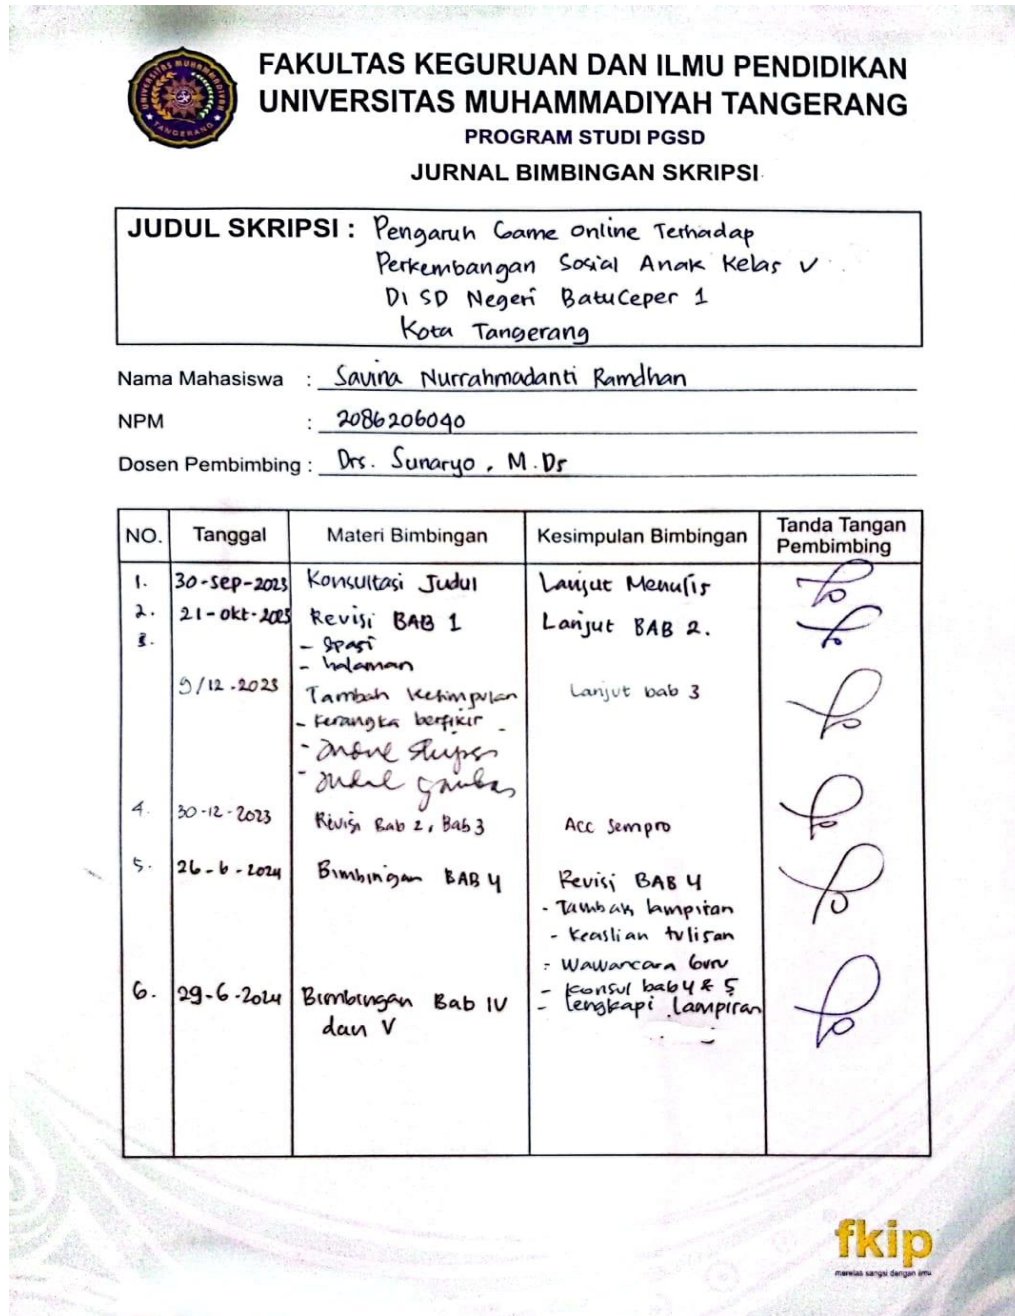 UNIVERSITAS MUHAMMADIYAH
TANGERANG
FAKULTAS KEGURUAN DAN ILMU PENDIDIKAN
UNIVERSITAS MUHAMMADIYAH TANGERANG
PROGRAM STUDI PGSD
JURNAL BIMBINGAN SKRIPSI
JUDUL SKRIPSI : Pengaruh Game Online Terhadap
Perkembangan Sosial Anak Kelas V
Di SD Negeri Batu Ceper 1
Kota Tangerang
Nama Mahasiswa : Savina Nurrahmadanti Ramdhan
NPM : 2086206040
Dosen Pembimbing : Drs. Sunaryo, M.Ds
NO. Tanggal Materi Bimbingan Kesimpulan Bimbingan Tanda Tangan Pembimbing
1. 30-Sep-2023 Konsultasi Judul Lanjut Menulis
2. 21-Okt-2023 Revisi BAB 1 Lanjut BAB 2.
3.
- Spasi
- halaman
9/12-2023 Tambah kesimpulan Lanjut bab 3
- kerangka berfikir
4. 30-12-2023 Revisi Bab 2, Bab 3 Acc Sempro
5. 26-6-2024 Bimbingan BAB 4 Revisi BAB 4
- Tambah lampiran
- Keaslian tulisan
- Wawancara Guru
- Konsul bab 4 & 5
6. 29-6-2024 Bimbingan Bab IV - lengkapi lampiran
dan V
fkip